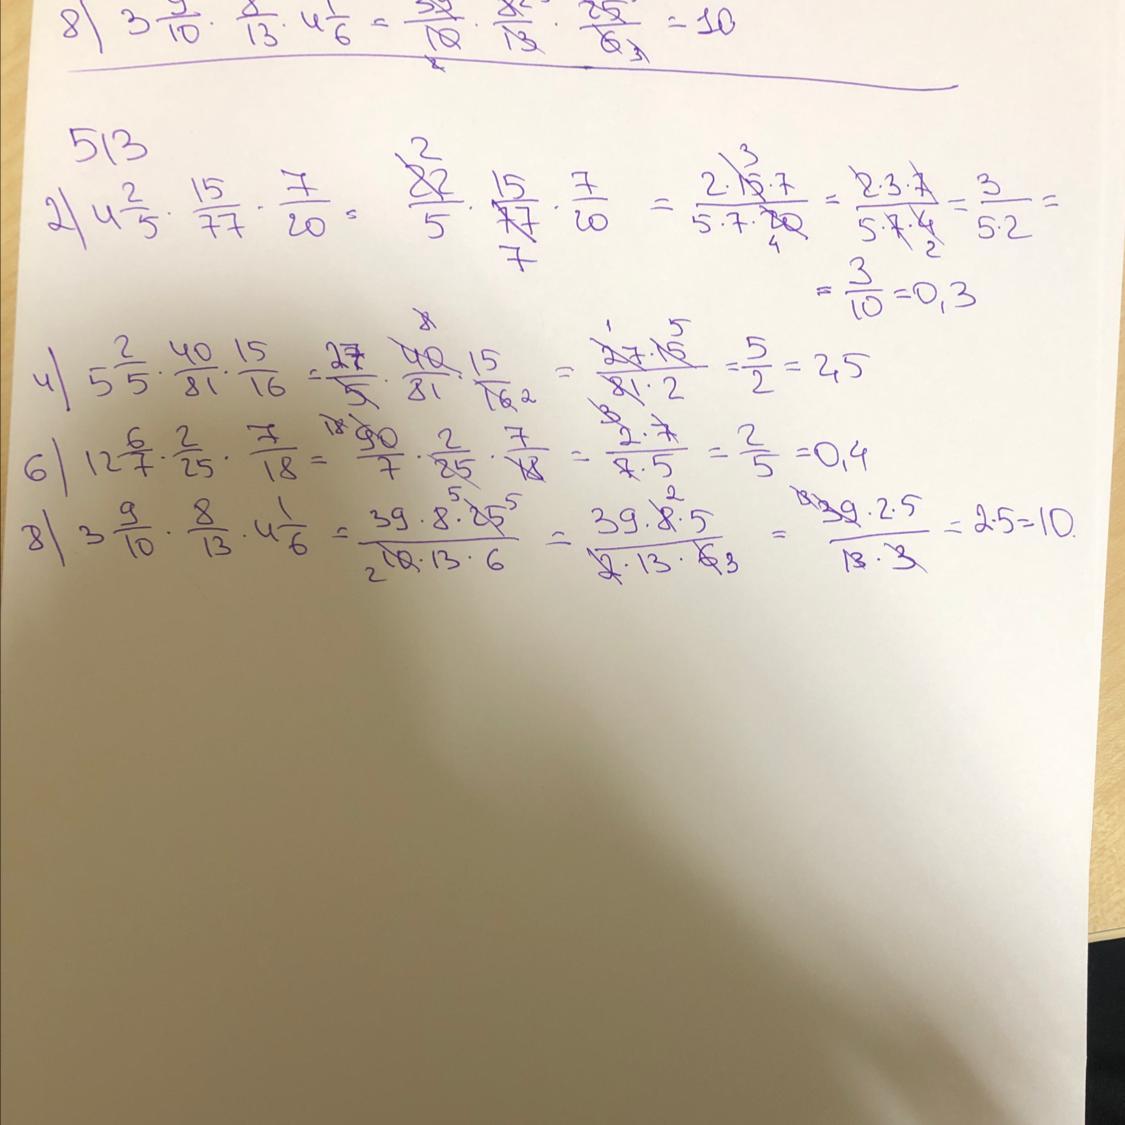 8) 3 9/10 · 8/13 · 4 1/6 = 39/10 2 · 8/13 · 25/6 3 = 10
513
2) 4 2/5 · 15/77 · 7/20 = 2 22/5 · 15/77 7 · 7/20 = 2·15 3·7/5·7·20 4 = 2·3·7/5·7·4 2 = 3/5·2 =
= 3/10 = 0,3
4) 5 2/5 · 40/81 · 15/16 = 27/5 · 8 40/81 · 15/16 2 = 1 27·15 5/81·2 = 5/2 = 2,5
6) 12 6/7 · 2/25 · 7/18 = 18 90/7 · 2/25 · 7/18 = 2·7/7·5 = 2/5 = 0,4
8) 3 9/10 · 8/13 · 4 1/6 = 39·8·25 5/2 10·13·6 = 39·8 2·5/2·13·6 3 = 39·2·5/13·3 = 2·5=10.